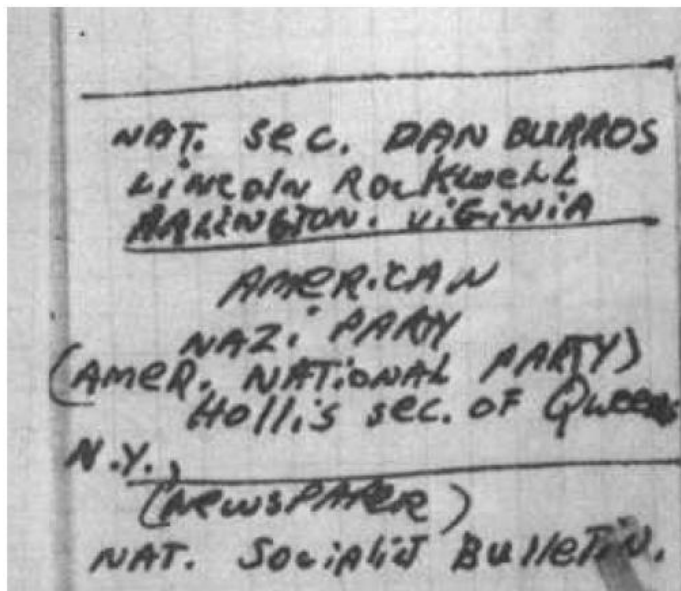 NAT. Sec. DAN BURROS
LiNCOLN ROCKWELL
ARLINGTON. ViGiNiA
AMERiCAN
NAZi PARY
(AMeR. NATiONAL PARTY)
Hollis sec. OF Queens
N.Y.,
(NEWSPAPER)
NAT. Socialist BulleTiN.